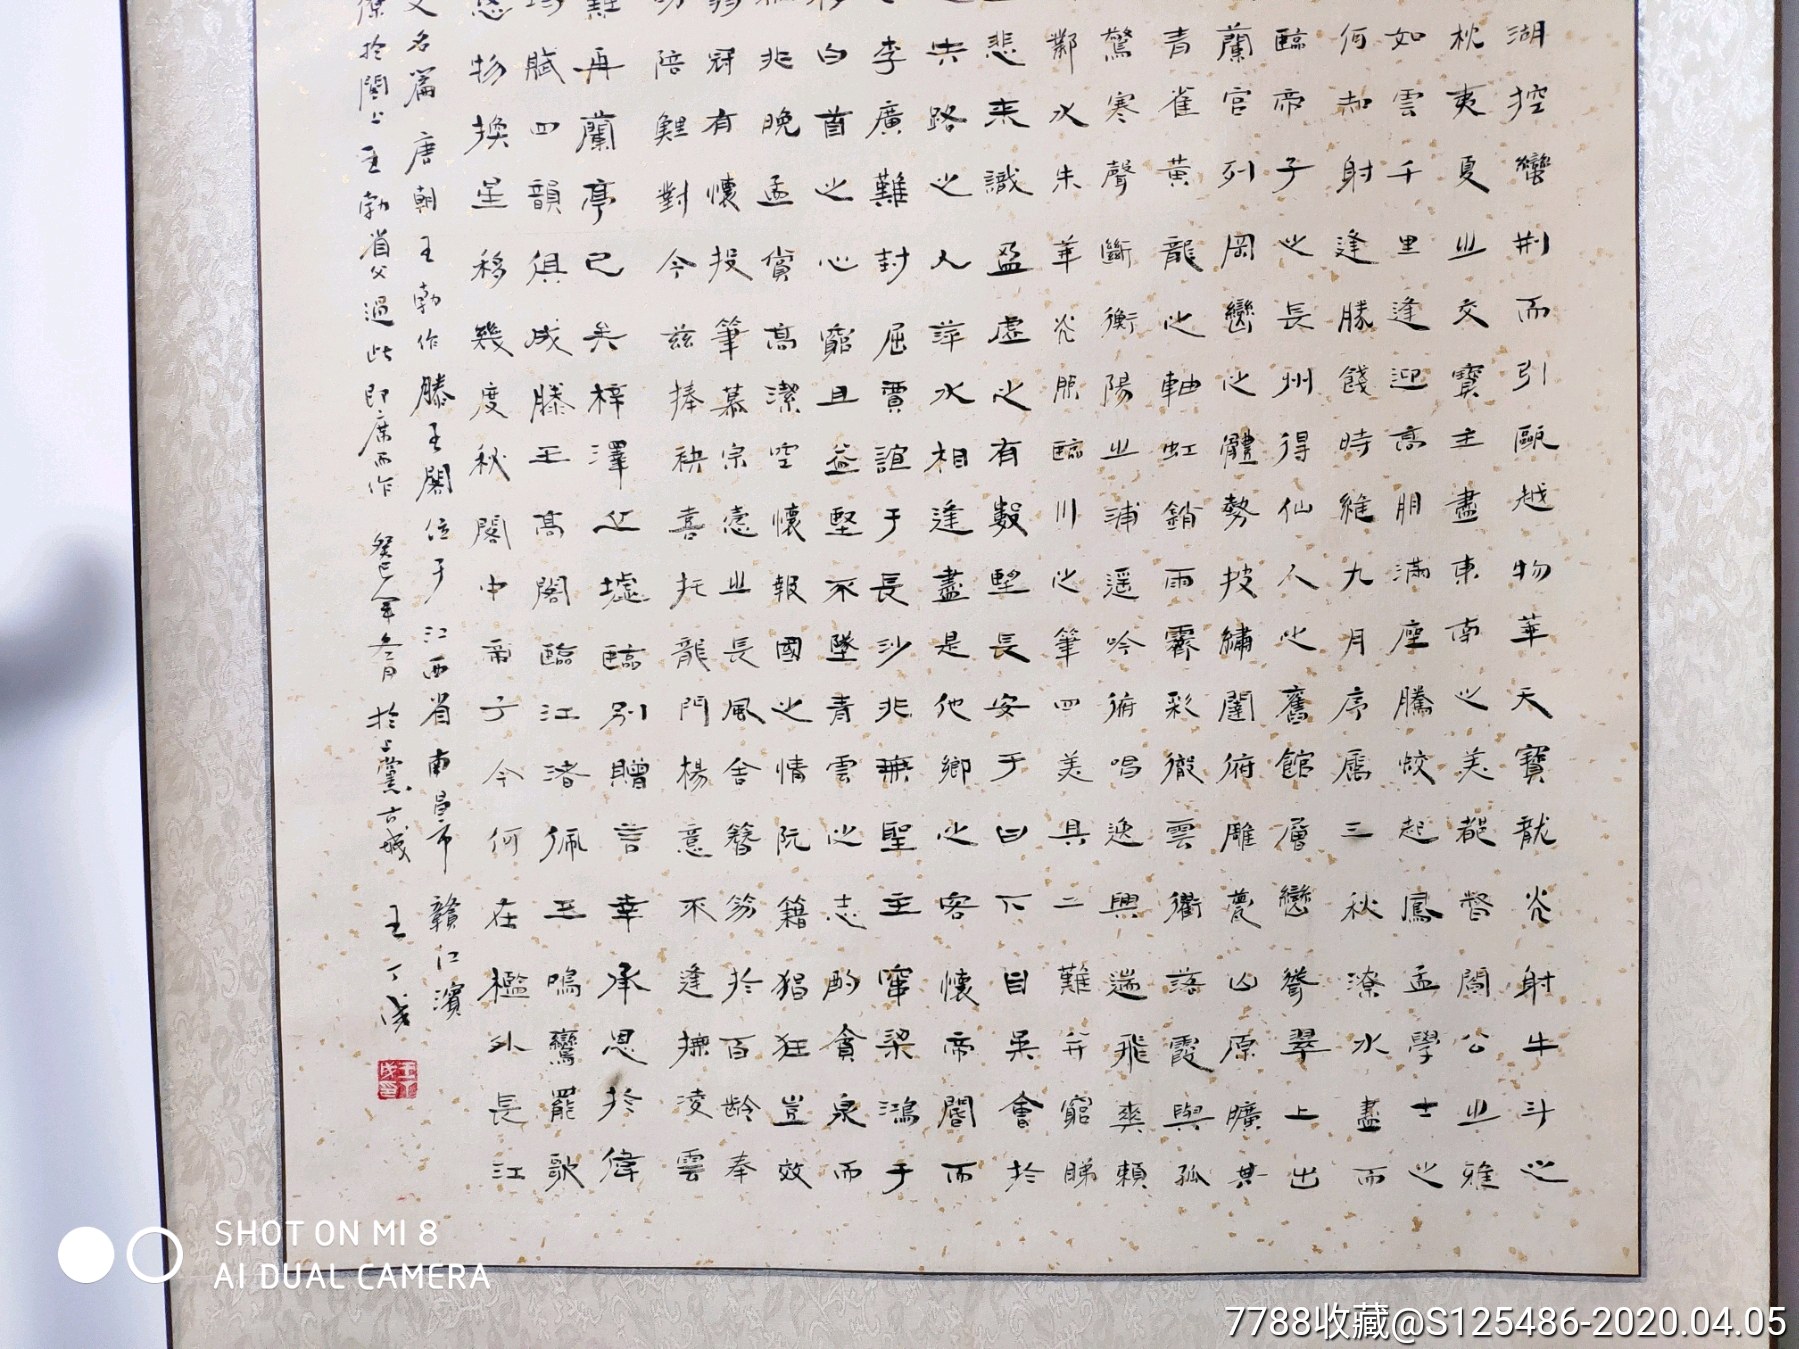 湖控蠻荊而引甌越物華天寶龍光射牛斗之
枕夷夏之交賓主盡東南之美都督閻公之雅
如雲千里逢迎高朋滿座騰蛟起鳳孟學士之
何知躬逢勝餞時維九月序屬三秋潦水盡而
臨帝子之長洲得仙人之舊館層巒聳翠上出
蘭宮列岡巒之體勢披繡闥俯雕甍山原曠其
青雀黃龍之軸虹銷雨霽彩徹雲衢落霞與孤
驚寒聲斷衡陽之浦遥吟俯唱逸興遄飛爽籟
鄴水朱華光照臨川之筆四美具二難并窮睇
悲來識盈虛之有數望長安于日下目吳會於
失路之人萍水相逢盡是他鄉之客懷帝閽而
李廣難封屈賈誼于長沙非無聖主竄梁鴻于
白首之心窮且益堅不墜青雲之志酌貪泉而
非晚孟嘗高潔空懷報國之情阮籍猖狂豈效
弱冠有懷投筆慕宗愨之長風舍簪笏於百齡奉
陪鯉對今兹捧袂喜托龍門楊意不逢撫凌雲
難再蘭亭已矣梓澤丘墟臨別贈言幸承恩於偉
賦四韻俱成滕王高閣臨江渚佩玉鳴鸞罷歌
悠物換星移幾度秋閣中帝子今何在檻外長江
文名篇 唐朝王勃作滕王閣位于江西省南昌市 贛江濱
於閻公 王勃省父過此即席而作 癸巳年冬月於上黨古城 王丁成
SHOT ON MI 8
AI DUAL CAMERA
7788收藏@S125486-2020.04.05